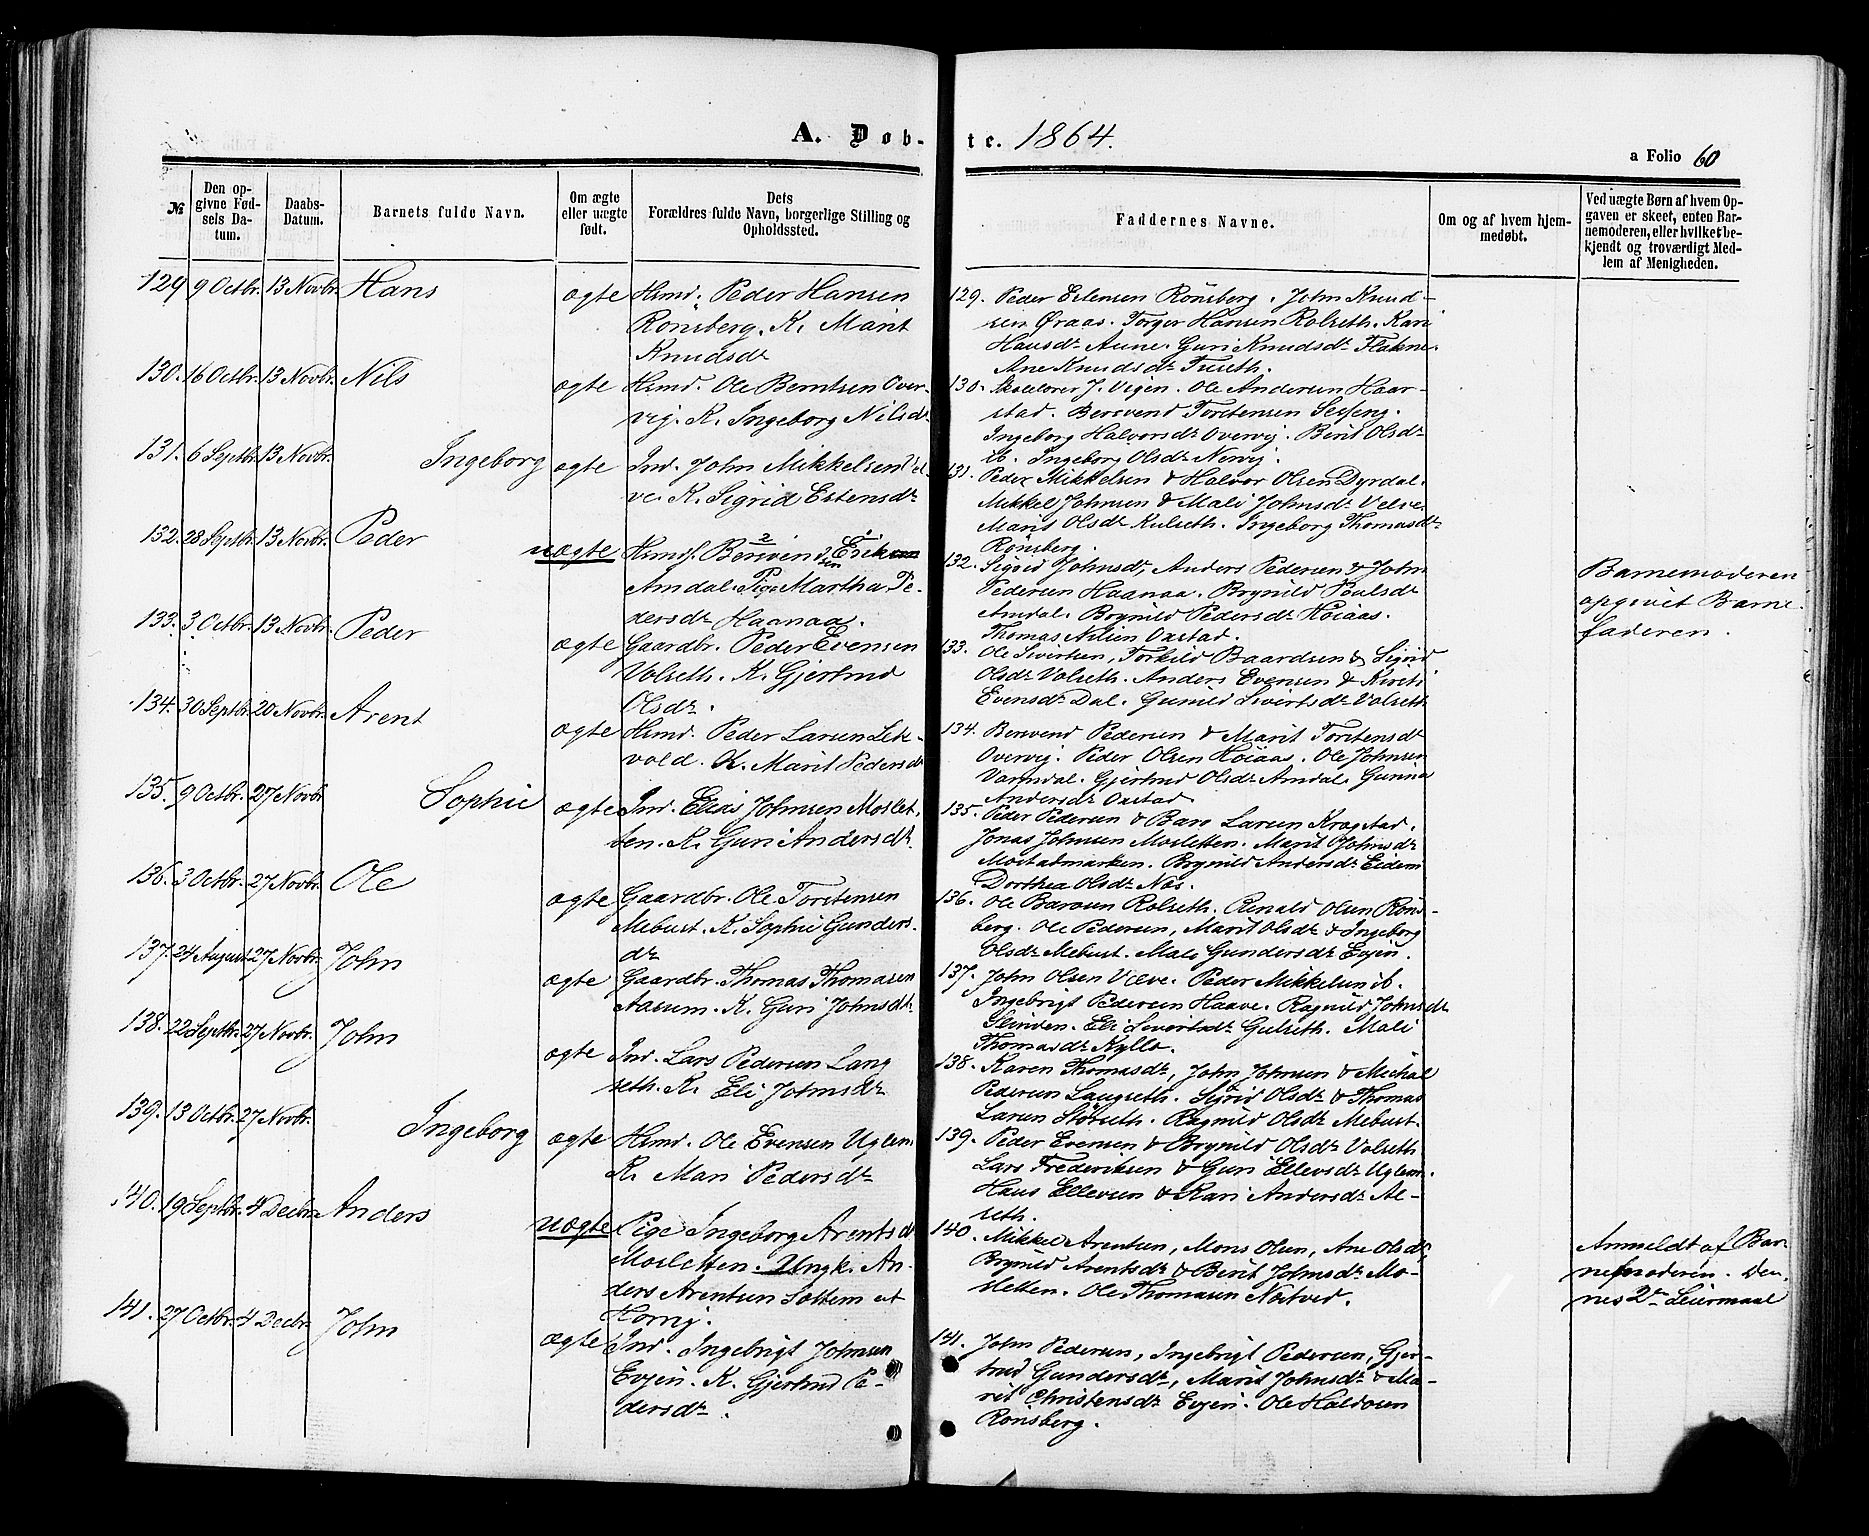 A. Døb-te. 1864.
a Folio 60
№
Den opgivne Fødsels Datum.
Daabs-Datum.
Barnets fulde Navn.
Om ægte eller uægte født.
Dets Forældres fulde Navn, borgerlige Stilling og Opholdssted.
Faddernes Navne.
Om og af hvem hjemmedøbt.
Ved uægte Børn af hvem Opgaven er skeet, enten Barnemoderen, eller hvilket bekjendt og troværdigt Medlem af Menigheden.
129 9 Octbr. 13 Novbr. Hans ægte Hsmd. Peder Hansen
Rönsberg. K. Marit
Knudsdr
129. Peder Estensen Rönsberg. John Knud-
sen Øraas. Torger Hansen Rolseth. Kari
Hansdr Aune. Guri Knudsdr Flakne.
Ane Knudsdr Tuseth.
130. 16 Octbr. 13 Novbr. Nils ægte Hsmd. Ole Berntsen Over-
vig. K. Ingeborg Nilsdr
130. Skolelærer J. Vigen. Ole Andersen Haar-
stad. Bersvend Torstensen Sesseng.
Ingeborg Halvorsdr Overvig. Berit Olsdr
ib. Ingeborg Olsdr Nervig.
131. 6 Septbr. 13 Novbr. Ingeborg ægte Ind. John Mikkelsen Vel-
ve. K. Sigrid Estensdr
131. Peder Mikkelsen & Halvor Olsen Dyrdal.
Mikkel Johnsen & Mali Johnsdr Velve.
Marit Olsdr Kulseth. Ingeborg Thomasdr
Rönsberg.
132. 28 Septbr. 13 Novbr. Peder uægte Hsmd. Bersvend Erik
Amdal. Pige Martha Pe-
dersdr Haanaas.
132. Sigrid Johnsdr, Anders Pedersen & John
Pedersen Haanaa. Brynild Poulsdr
Amdal. Brynild Pedersdr Höiaas.
Thomas Nilsen Oxstad.
Barnemoderen
opgivet Barne
faderen.
133. 3 Octbr. 13 Novbr. Peder ægte Gaardbr. Peder Evensen
Volseth. K. Gjertrud
Olsdr.
133. Ole Sivertsen, Torkild Baardsen & Sigrid
Olsdr Volseth. Anders Evensen & Kirsti
Evensdr Dal. Gunild Sivertsdr Volseth
134. 30 Septbr. 20 Novbr. Arent ægte Hsmd. Peder Larsen Lek-
vold. K. Marit Pedersdr
134. Bersvend Pedersen & Marit Torstensdr
Overvig. Peder Olsen Höiaas. Ole Johnsen
Varmdal. Gjertrud Olsdr Amdal. Gunild
Andersdr Oxstad
135. 9 Octbr. 27 Novbr Sophie ægte Ind. Elias Johnsen Moslet-
ten. K. Guri Andersdr.
135. Peder Pedersen & Baro Larsen Krogstad.
Jonas Johnsen Mosletten. Marit Johnsdr
Mostadmarken. Brynild Andersdr Eidem
Dorthea Olsdr Næs.
136. 3 Octbr. 27 Novbr. Ole ægte Gaardbr. Ole Torstensen
Mebust. K. Sophie Gunders-
dr
136. Ole Barosen Rolseth. Renald Olsen Röns-
berg. Ole Pedersen, Marit Olsdr & Ingeborg
Olsdr Mebust. Mali Gundersdr Evjen.
137. 24 August 27 Novbr. John ægte Gaardbr. Thomas Thomasen
Aasum. K. Guri Johnsdr.
137. John Olsen Velve. Peder Mikkelsen ib.
Ingebrigt Pedersen Haave. Ragnild Johnsdr
Slinden. Eli Sivertsdr Gulseth. Mali
Thomasdr Kyllo.
138. 22 Septbr. 27 Novbr. John ægte Ind. Lars Pedersen Lang
seth. K. Eli Johnsdr
138. Karen Thomasdr, John Johnsen & Michal
Pedersen Langseth. Sigrid Olsdr & Thomas
Larsen Stölseth. Ragnild Olsdr Mebust.
139. 13 Octbr. 27 Novbr. Ingeborg ægte Hsmd. Ole Evensen Uglem
K. Mari Pedersdr
139. Peder Evensen & Brynild Olsdr Volseth
Lars Frederiksen & Guri Ellevsdr Uglem.
Hans Ellevsen & Kari Andersdr Al-
seth.
140. 19 Septbr. 4 Decbr. Anders uægte Pige Ingeborg Arentsdr
Mosletten. Ungk. An-
ders Arentsen Sottem at
Horvig.
140. Mikkel Arentsen, Mons Olsen, Ane Olsdr,
Brynild Arentsdr & Berit Johnsdr Mo-
sletten. Ole Thomasen Nostved.
Anmeldt af Bar-
nemoderen. Den-
nes 2det Leiermaal
141. 27 Octbr. 4 Decbr. John ægte Ind. Ingebrigt Johnsen
Evjen. K. Gjertrud Pe-
dersdr.
141. John Pedersen, Ingebrigt Pedersen, Gjer-
trud Gundersdr, Marit Johnsdr & Ma-
rit Christensdr Evjen. Ole Haldosen
Rönsberg.